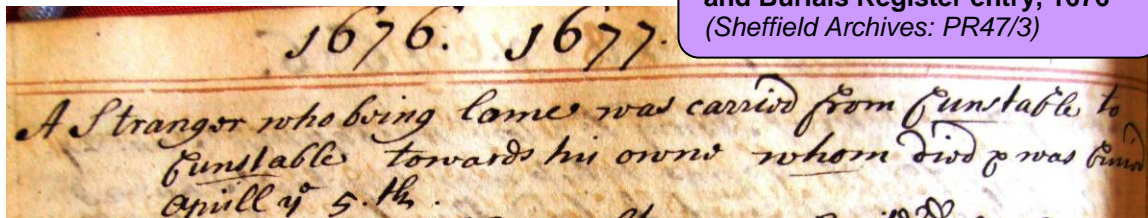 and Burials Register entry, 1676
(Sheffield Archives: PR47/3)
1676. 1677.
A Stranger who being lame was carried from Cunstable to
Cunstable towards his owne whom died & was buried
Aprill ye 5.th.